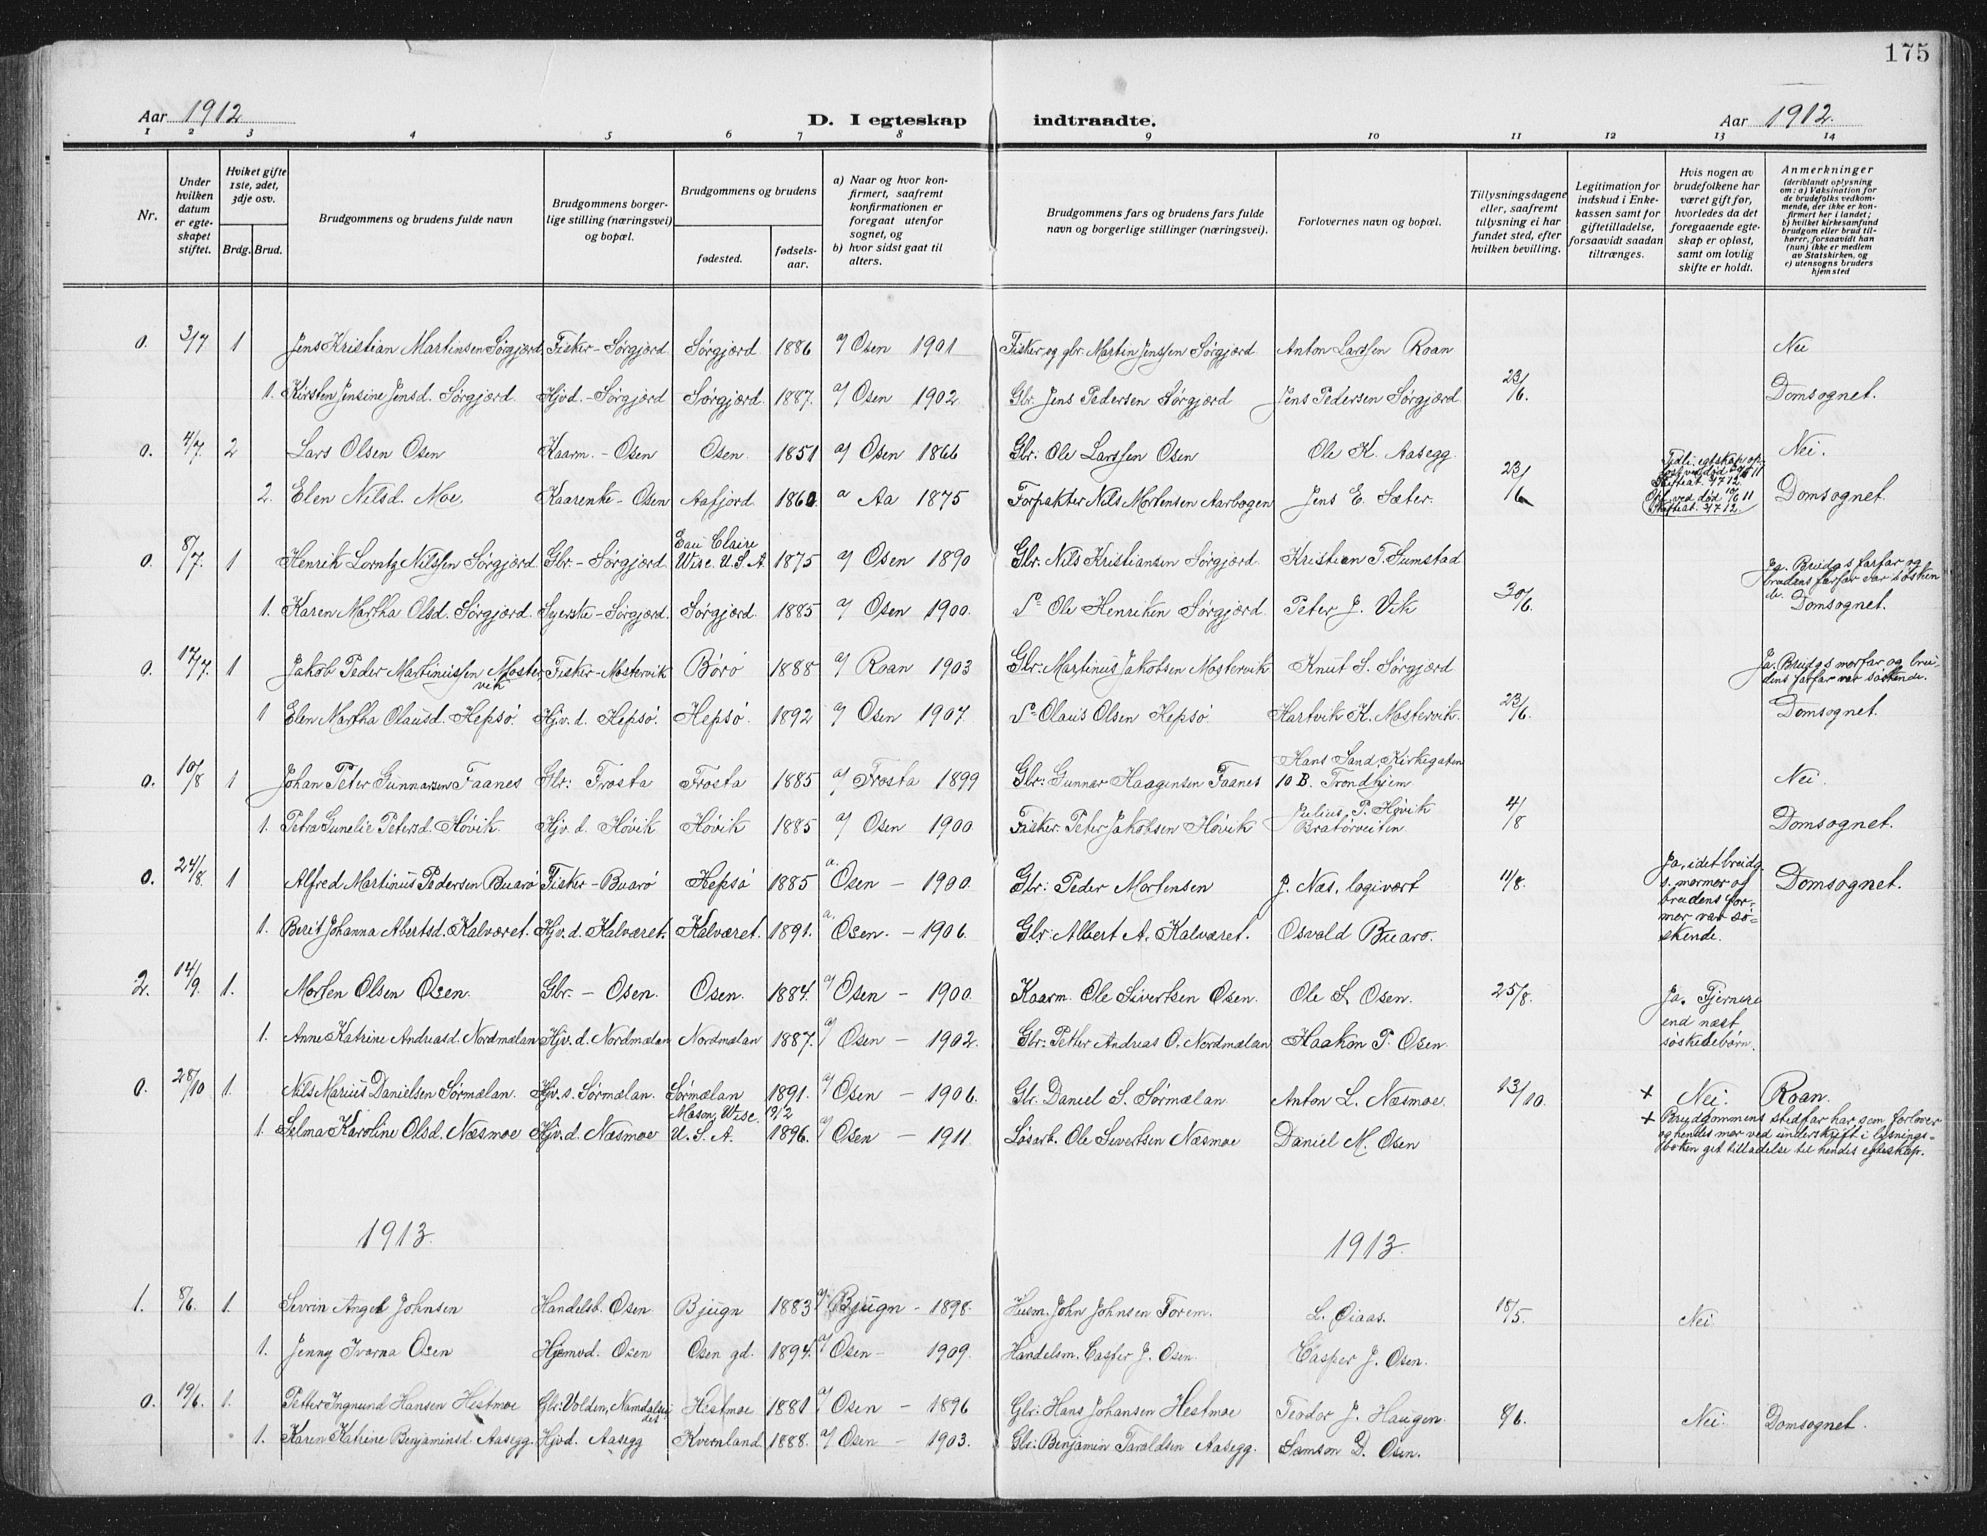 175
Aar 1912
D. I egteskap indtraadte.
Aar 1912.
1 2 3 4 5 6 7 8 9 10 11 12 13 14
Nr.
Under hvilken datum er egteskapet stiftet.
Hviket gifte 1ste, 2det, 3dje osv.
Brdg. Brud.
Brudgommens og brudens fulde navn
Brudgommens borgerlige stilling (næringsvei) og bopæl.
Brudgommens og brudens
fødested.
fødselsaar.
a) Naar og hvor konfirmert, saafremt konfirmationen er foregaat utenfor sognet, og
b) hvor sidst gaat til alters.
Brudgommens fars og brudens fars fulde navn og borgerlige stillinger (næringsvei).
Forlovernes navn og bopæl.
Tillysningsdagene eller, saafremt tillysning ei har fundet sted, efter hvilken bevilling.
Legitimation for indskud i Enkekassen samt for giftetilladelse, forsaavidt saadan tiltrænges.
Hvis nogen av brudefolkene har været gift før, hvorledes da det foregaaende egteskap er opløst, samt om lovlig skifte er holdt.
Anmerkninger (deriblandt oplysning om: a) Vaksination for de brudefolks vedkommende, der ikke er konfirmert her i landet; b) hvilket kirkesamfund brudgom eller brud tilhører, forsaavidt han (hun) ikke er medlem av Statskirken, og c) utensogns bruders hjemsted
0. 3/7 1 Jens Kristian Martinsen Sørgjærd Fisker - Sørgjærd Sørgjærd 1886 a/ Osen 1901 Fisker og gbr. Martin Jenssen Sørgjærd Anton Larssen Roan Nei
1. Kirsten Jensine Jensd. Sørgjærd Hjvd. - Sørgjærd Sørgjærd 1887. a/ Osen 1902 Gbr. Jens Pedersen Sørgjærd Jens Pedersen Sørgjærd 23/6. Domsognet.
0. 4/7. 2 Lars Olsen Osen Kaarm. - Osen Osen. 1851 a/ Osen 1866 Gbr. Ole Larssen Osen Ole K. Aasegg Nei.
2. Elen Nilsd. Moe Kaarenke - Osen Aafjord. 1860. a Aa 1875 Forpakter Nils Mortensen Aarbogen Jens E. Sæter. 23/6 Domsognet.
0. 8/7. 1 Henrik Lorntz Nilssen Sørgjærd Gbr. - Sørgjærd Eau Claire Wisc. U.S.A. 1875 a/ Osen 1890 Gbr. Nils Kristiansen Sørgjærd Kristian T. Sumstad Ja. Brudgs farfar og brudens farfar var søskende.
1. Karen Martha Olsd. Sørgjærd Syerske - Sørgjærd. Sørgjærd. 1885 a/ Osen 1900. Do Ole Henriksen Sørgjærd Peter J. Vik 30/6. Domsognet.
0. 17/7. 1 Jakob Peder Martinussen Mostervik Fisker - Mostervik Børø 1888 a/ Roan 1903 Gbr. Martinus Jakobsen Mostervik Knut S. Sørgjærd Ja. Brudgs morfar og brudens farfar var søskende.
1 Elen Martha Olausd. Hepsø Hjv. d. Hepsø. Hepsø. 1892 a/ Osen 1907. Do Olaus Olsen Hepsø Hartvik K. Mostervik. 23/6. Domsognet.
0. 10/8 1 Johan Peter Gunnarsen Faanes Gbr: Frosta Frosta 1885 a/ Frosta 1899 Gbr: Gunnar Haagensen Faanes Hans Sand, Kirkegaten 10 B. Trondhjem Nei.
1. Petra Gunelie Petersd. Høvik Hjv. d. Høvik Høvik 1885 a/ Osen 1900 Fisker. Peter Jakobsen Høvik Julius P. Høvik Bratørveiten 4/8 Domsognet.
0. 24/8. 1 Alfred Martinus Pedersen Buarø Fisker - Buarø Hepsø 1885 a. Osen - 1900. Gbr: Peder Mortensen J. Næs, logivært 11/8. Ja, idet brudgs. mormor og brudens farmor var søskende. Domsognet.
1. Berit Johanna Albertsd. Kalværet. Hjv. d. Kalværet. Kalværet. 1891. a. Osen. - 1906. Gbr: Albert A. Kalværet. Osvald Buarø.
2. 14/9. 1. Morten Olsen Osen. Gbr. - Osen. Osen. 1884. a/ Osen - 1900. Kaarm. Ole Sivertsen Osen. Ole S. Osen. 25/8. Ja. Fjernere end næst søskedebørn.
1. Anne Katrine Andreasd. Nordmælan Hjv. d. Nordmælan Nordmælan 1887. a/ Osen - 1902. Gbr: Petter Andreas O. Nordmælan Haakon P. Osen
0. 28/10 1. Nils Marius Danielsen Sørmælan. Hjv. s. Sørmælan. Sørmælan 1891. a/ Osen - 1906. Gbr. Daniel S. Sørmælan. Anton L. Næsmoe. 13/10. + Nei. Roan.
1. Selma Karoline Olsd. Næsmoe Hjv. d. Næsmoe Mason, Wisc. U.S.A. 12/2 1896. a/ Osen - 1911. Løsarb. Ole Sivertsen Næsmoe Daniel M. Osen
+ Brudgommens stedfar har som forlover og hendes mor ved underskrift i lysningsboken git tilladelse til hendes egteskap.
1913. 1913.
1. 8/6. 1. Sevrin Angel Johnsen Handelsb. Osen Bjugn 1883 a/ Bjugn - 1898. Husm. John Johnsen Torem. L. Oiaas. 18/5. Nei
1. Jenny Ivarna Osen Hjemvd. Osen Osen gd. 1894. a/ Osen - 1909. Handelsm. Casper J. Osen. Casper J. Osen.
0. 19/6. 1. Petter Ingmund Hansen Hestmoe Gbr: Volden, Namdalseidet Hestmoe 1881 a/ Osen - 1896 Gbr: Hans Johansen Hestmoe Teodor J. Haugen. 8/6. Nei. Domsognet.
1. Karen Katrine Benjaminsd. Aasegg. Hjvd. Aasegg Kvernland 1888. a/ Osen - 1903. Gbr: Benjamin Taraldsen Aasegg. Samson D. Osen.